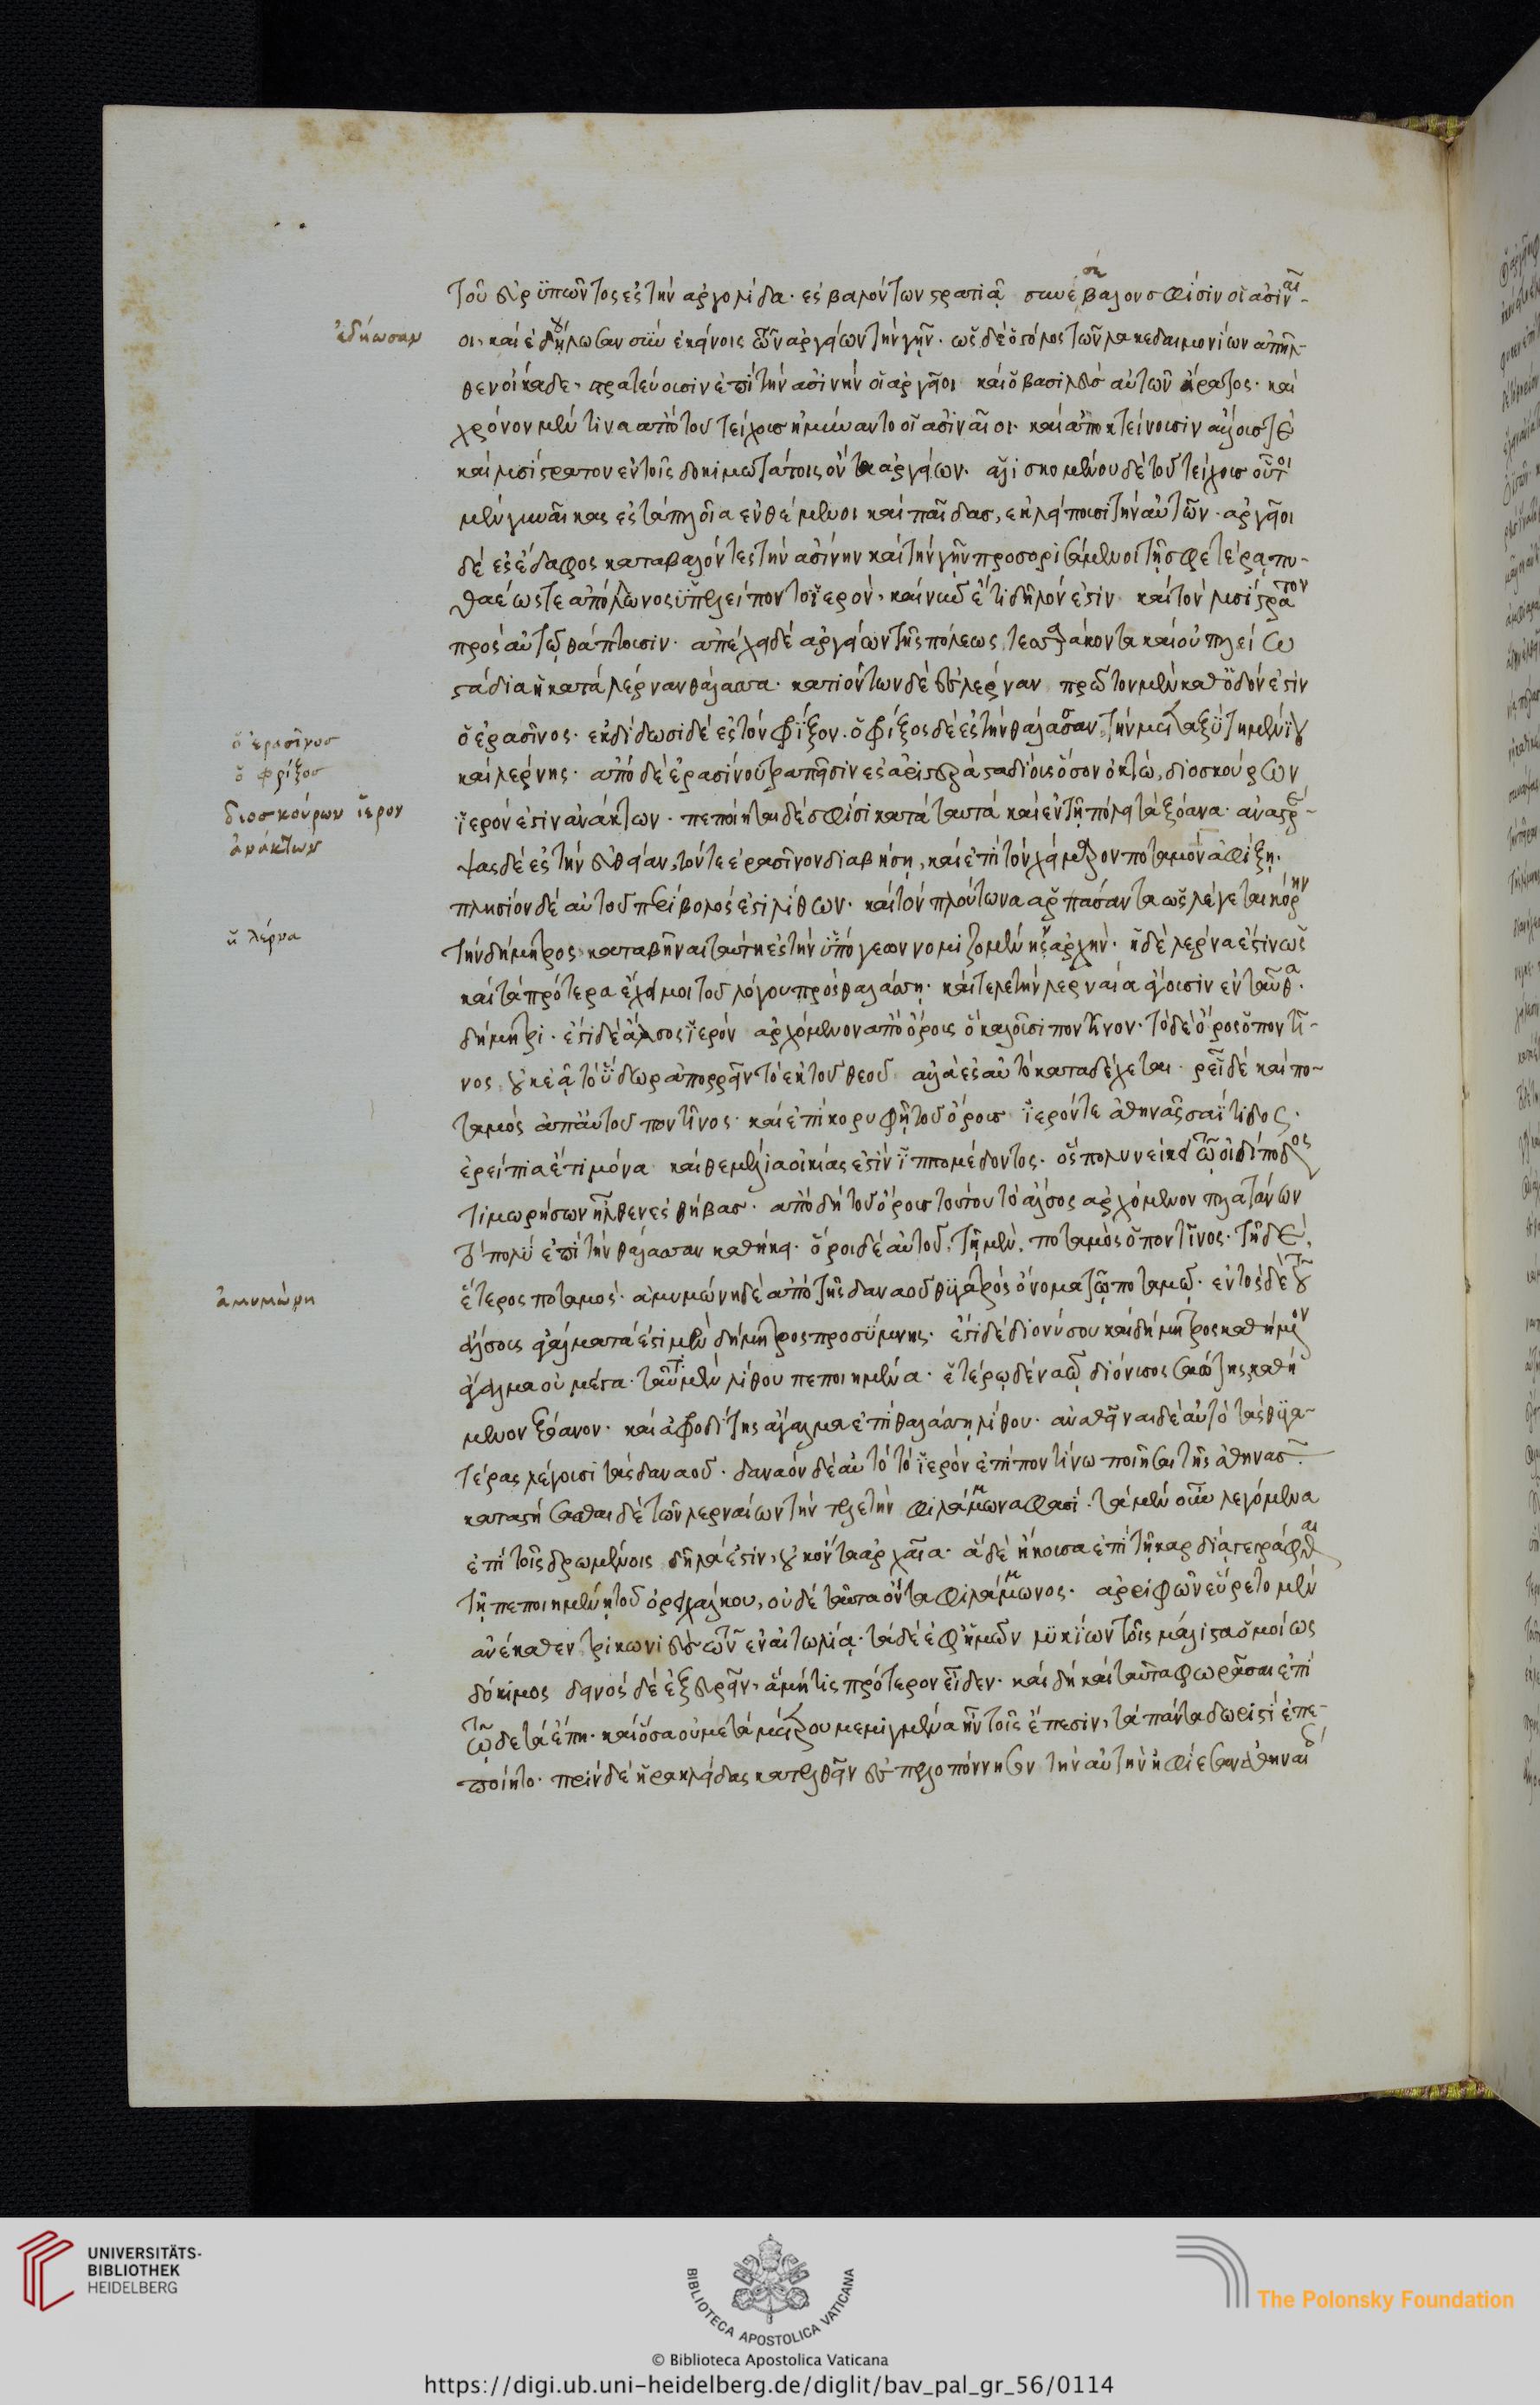 τοῦ εὐρυπῶντος ἐς τὴν ἀργολίδα· ἐσβαλόντων στρατιᾷ συνεσέβαλον σφίσιν οἱ ἀσιναῖ-
ἐδήωσαν
οι, καὶ ἐδήλωσαν σὺν ἐκείνοις τῶν ἀργείων τὴν γῆν. ὡς δὲ ὁ στόλος τῶν λακεδαιμονίων ἀπῆλ-
θεν οἴκαδε, στρατεύουσιν ἐπὶ τὴν ἀσίνην οἱ ἀργεῖοι καὶ ὁ βασιλεὺς αὐτῶν ἔρατος· καὶ
χρόνον μέν τινα ἀπὸ τοῦ τείχους ἠμύναντο οἱ ἀσιναῖοι· καὶ ἀποκτείνουσιν ἄλλους τὲ
καὶ λυσίστρατον ἐν τοῖς δοκιμωτάτοις ὄντα ἀργείων. ἁλισκομένου δὲ τοῦ τείχους οὗτοι
μὲν γυναῖκας ἐς τὰ πλοῖα ἐνθέμενοι καὶ παῖδας, ἐκλείπουσι τὴν αὐτῶν· ἀργεῖοι
δὲ ἐς ἔδαφος καταβαλόντες τὴν ἀσίνην καὶ τὴν γῆν προσορισάμενοι τῇ σφετέρᾳ, πυ-
θαέως τε ἀπόλλωνος ὑπελείποντο ἱερὸν, καὶ νῦν ἔτι δῆλόν ἐστιν καὶ τὸν λυσίστρατον
πρὸς αὐτῷ θάπτουσιν. ἀπέχει δὲ ἀργείων τῆς πόλεως τεσσαράκοντα καὶ οὐ πλείω
στάδια ἡ κατὰ λέρναν θάλασσα. κατιόντων δὲ ἐς λέρναν πρῶτον μὲν καθ' ὁδόν ἐστιν
ὁ ἐρασῖνος
ὁ ἐρασῖνος· ἐκδίδωσι δὲ ἐς τὸν φρίξον. ὁ φρίξος δὲ ἐς τὴν θάλασσαν τὴν μεταξὺ τημενίου
ὁ φρίξος
καὶ λέρνης. ἀπὸ δὲ ἐρασίνου τραπεῖσιν ἐς ἀριστερὰ σταδίους ὅσον ὀκτὼ, διοσκούρων
διοσκούρων ἱερον
ἱερόν ἐστιν ἀνάκτων· πεποίηται δὲ σφίσι κατὰ ταυτὰ καὶ ἐν τῇ πόλει τὰ ξόανα. ἀναστρέ-
ἀνάκτων
ψας δὲ ἐς τὴν εὐθεῖαν, τόν τε ἐρασῖνον διαβήσῃ, καὶ ἐπὶ τὸν χείμαρρον ποταμὸν ἀφίξῃ.
πλησίον δὲ αὐτοῦ περίβολός ἐστι λίθων· καὶ τὸν πλούτωνα ἁρπάσαντα ὡς λέγεται κόρην
ἡ λέρνα
τὴν δήμητρος καταβῆναι ταύτῃ ἐς τὴν ὑπόγεων νομιζομένην ἀρχήν. ἡ δὲ λέρνα ἐστὶν ὡς
καὶ τὰ πρότερα ἔχει μοι τοῦ λόγου πρὸς θαλάσσῃ· καὶ τελετὴν λερναίᾳ ἄγουσιν ἐνταῦθα
δήμητρι. ἔστι δὲ ἄλσος ἱερὸν ἀρχόμενον ἀπὸ ὄρους ὃ καλοῦσι ποντῖνον. τὸ δὲ ὄρος ὁ ποντῖ-
νος οὐκ ἐᾷ τὸ ὕδωρ ἀπορρεῖν τὸ ἐκ τοῦ θεοῦ ἀλλὰ ἐς αὐτὸ καταδέχεται. ῥεῖ δὲ καὶ πο-
ταμὸς ἀπ' αὐτοῦ ποντῖνος· καὶ ἐπὶ κορυφῇ τοῦ ὄρους ἱερόν τε ἀθηνᾶς σαΐτιδος·
ἐρείπια ἔτι μόνα καὶ θεμέλια οἰκίας ἐστὶν ἱππομέδοντος. ὃς πολυνείκει τῷ οἰδίποδος
τιμωρήσων ἦλθεν ἐς θήβας. ἀπὸ δὴ τοῦ ὄρους τούτου τὸ ἄλσος ἀρχόμενον πλατάνων
τὸ πολὺ ἐπὶ τὴν θάλασσαν καθήκει. ὅροι δὲ αὐτοῦ, τῇ μὲν, ποταμὸς ὁ ποντῖνος· τῇ δὲ,
ἀμυμώνη
ἕτερος ποταμός· ἀμυμώνη δὲ ἀπὸ τῆς δαναοῦ θυγατρὸς ὄνομα τῷ ποταμῷ. ἐντὸς δὲ τοῦ
ἄλσους ἀγάλματά ἐστι μὲν δήμητρος προσύμνης· ἔστι δὲ διονύσου καὶ δήμητρος καθήμενον
ἄγαλμα οὐ μέγα. ταῦτι μὲν λίθου πεποιημένα. ἑτέρῳ δὲ ναῷ διόνυσος σαώτης καθή
μενον ξόανον· καὶ ἀφροδίτης ἄγαλμα ἐπὶ θαλάσσῃ λίθου. ἀναθεῖναι δὲ αὐτὸ τὰς θυγα-
τέρας λέγουσι τὰς δαναοῦ. δαναὸν δὲ αὐτὸ τὸ ἱερὸν ἐπὶ ποντίνω ποιῆσαι τῆς ἀθηνᾶς.
καταστήσασθαι δὲ τῶν λερναίων τὴν τελετὴν φιλάμμωνα φασί. τὰ μὲν οὖν λεγόμενα
ἐπὶ τοῖς δρωμένοις δῆλά ἐστιν, οὐκ ὄντα ἀρχαῖα. ἃ δὲ ἤκουσα ἐπὶ τῇ καρδίᾳ γεγράφθαι
τῇ πεποιημένῃ τοῦ ὀρειχάλκου, οὐδὲ ταῦτα ὄντα φιλάμμωνος. ἀρριφῶν εὕρετο μὲν
ἀνέκαθεν τρικωνιεὺς ὢν τῶν ἐν αἰτωλίᾳ· τὰ δὲ ἐφ' ἡμῶν λυκίων τοῖς μάλιστα ὁμοίως
δόκιμος δεινὸς δὲ ἐξευρεῖν, ἃ μή τις πρότερον εἶδεν. καὶ δὴ καὶ ταῦτα φωρᾶσαι ἐπὶ
τῷδε τὰ ἔπη. καὶ ὅσα οὐ μετὰ μέτρου μεμιγμένα ἦν τοῖς ἔπεσιν, τὰ πάντα δωριστὶ ἐπε-
ποίητο. πρὶν δὲ ἡρακλείδας κατελθεῖν ἐς πελοπόννησον τὴν αὐτὴν ἠφίεσαν ἀθηναί
UNIVERSITÄTS-
BIBLIOTHEK
HEIDELBERG
BIBLIOTECA APOSTOLICA VATICANA
The Polonsky Foundation
© Biblioteca Apostolica Vaticana
https://digi.ub.uni-heidelberg.de/diglit/bav_pal_gr_56/0114